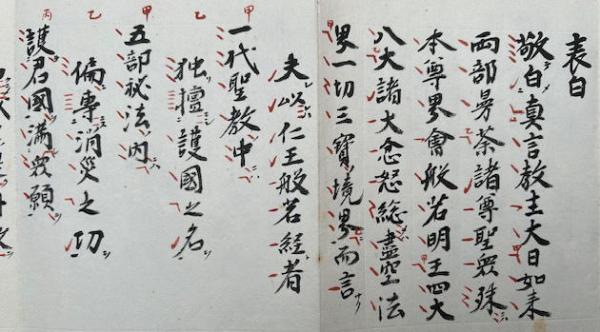 表白
敬白真言教主大日如来
両部曼荼諸尊聖衆殊
本尊界會般若明王四大
八大諸大忿怒総盡空法
界一切三寶境界而言
夫以仁王般若経者
甲
一代聖教中
乙
独擅護國之名
甲
五部秘法内
乙
偏専消災之功
丙
護君國満衆願